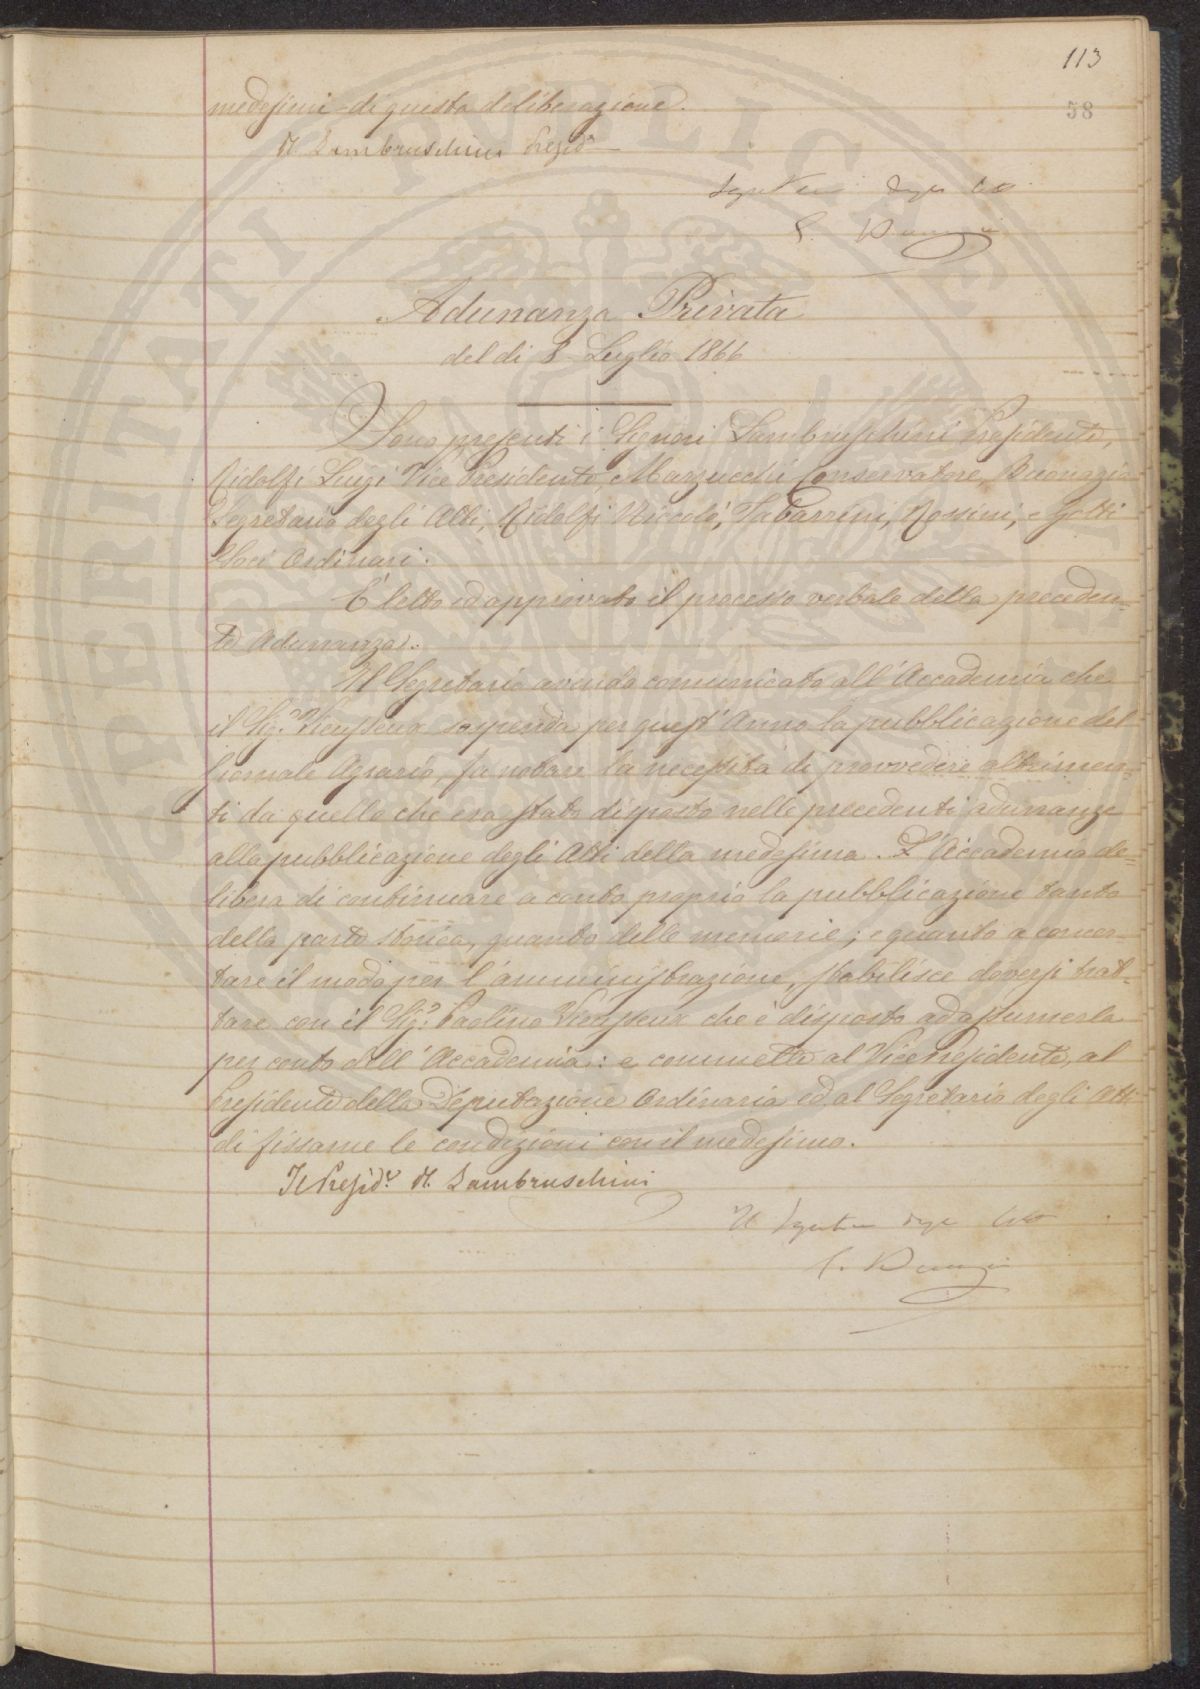 113
58
medesimi di questa deliberazione.
R. Lambruschini Presid.e
Segretario degli Atti
Adunanza Privata
del dì 8 Luglio 1866
Sono presenti i Signori Lambruschini Presidente,
Ridolfi Luigi Vice Presidente, Marzucchi Conservatore, Buonazia
Segretario degli Atti, Ridolfi Niccolò, Tabarrini, Rossini, e Gotti
Soci Ordinari.
È letto ed approvato il processo verbale della preceden-
te Adunanza.
Il Segretario avendo comunicato all'Accademia che
il Sig.r Vieusseux sospenda per quest'Anno la pubblicazione del
Giornale Agrario, fa notare la necessità di provvedere altrimen-
ti da quello che era stato disposto nelle precedenti adunanze
alla pubblicazione degli Atti della medesima. L'Accademia de-
libera di continuare a conto proprio la pubblicazione tanto
della parte storica, quanto delle memorie; e quanto a concer-
tare il modo per l'amministrazione, stabilisce doversi trat-
tare con il Sig.r Paolino Vieusseux che è disposto ad assumerla
per conto dell'Accademia: e commette al Vice Presidente, al
Presidente della Deputazione Ordinaria ed al Segretario degli Atti
di fissarne le condizioni con il medesimo.
Il Presid.e R. Lambruschini
Il Segretario degli Atti